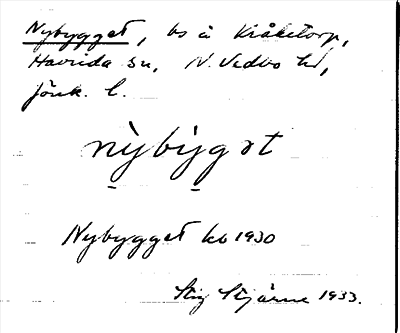 Nybygget, bs å Kråketorp,
Haurida sn, N. Vedbo hd,
Jönk. l.
nỳbýgət
Nybygget kb 1930
Stig Stjärne 1933.